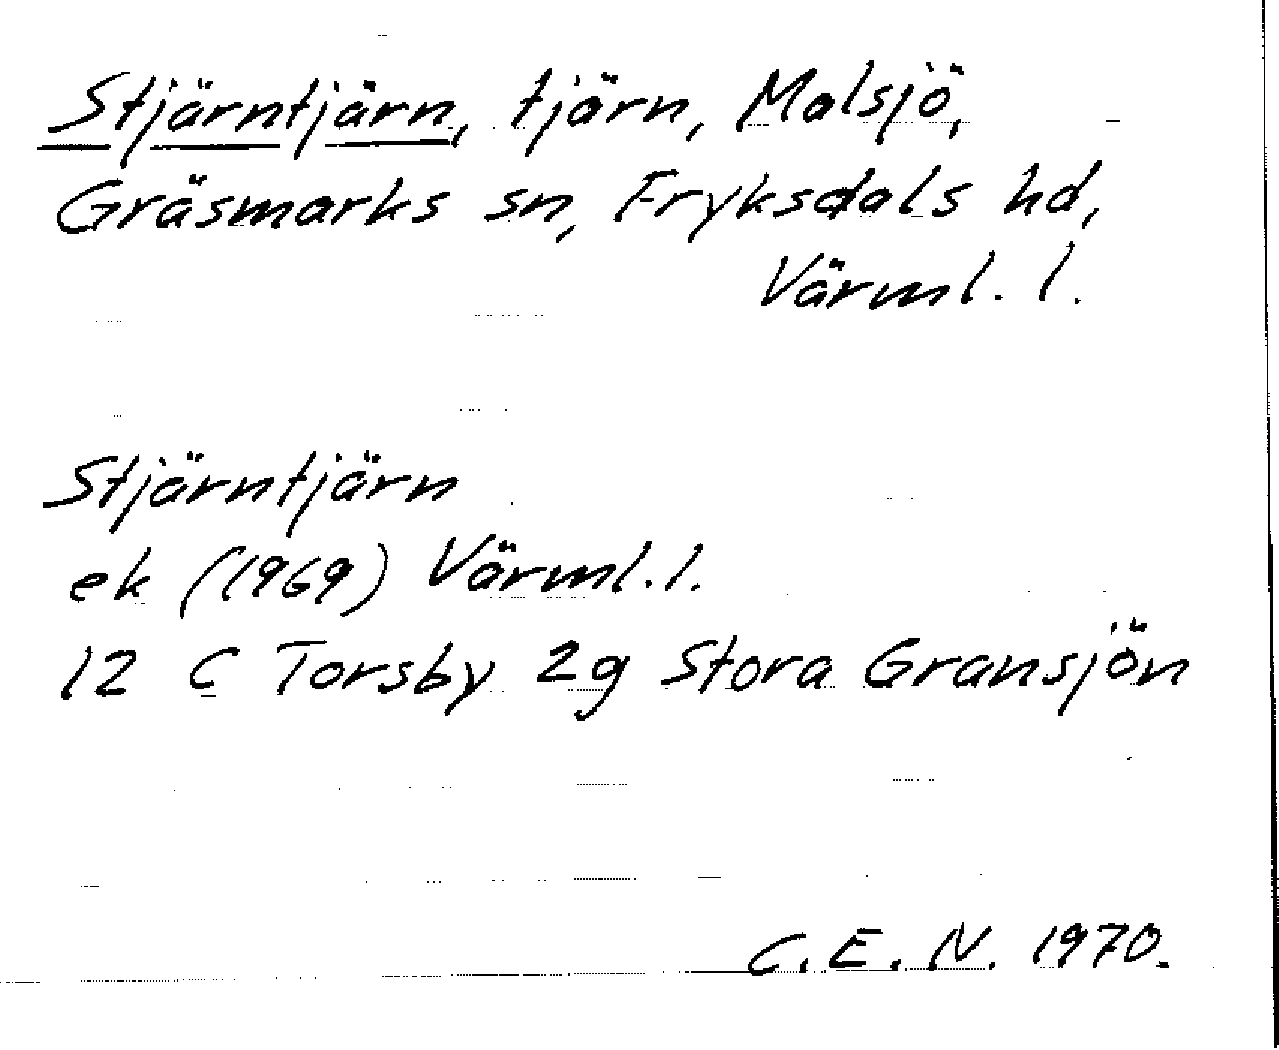 Stjärntjärn, tjärn, Malsjö,
Gräsmarks sn, Fryksdals hd,
Värml. l.
Stjärntjärn
ek (1969) Värml. l.
12 C Torsby 2g Stora Gransjön
C. E. N. 1970.